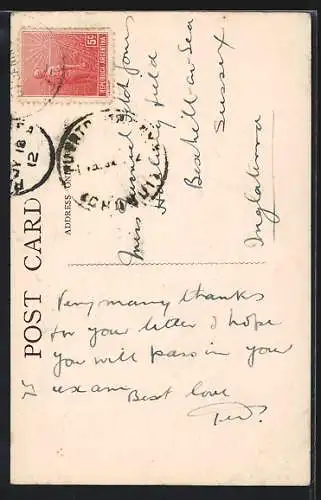 5c
REPUBLICA ARGENTINA
JY 18
12
POST CARD
ADDRESS ONLY
Miss
field
Bexhill-on-Sea
Sussex
Inglaterra
Very many thanks
for your letter I hope
you will pass in your
exam Best love